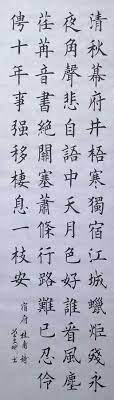 清秋幕府井梧寒獨宿江城蠟炬殘永
夜角聲悲自語中天月色好誰看風塵
荏苒音書絕關塞蕭條行路難已忍伶
俜十年事强移棲息一枝安
宿府 杜甫詩